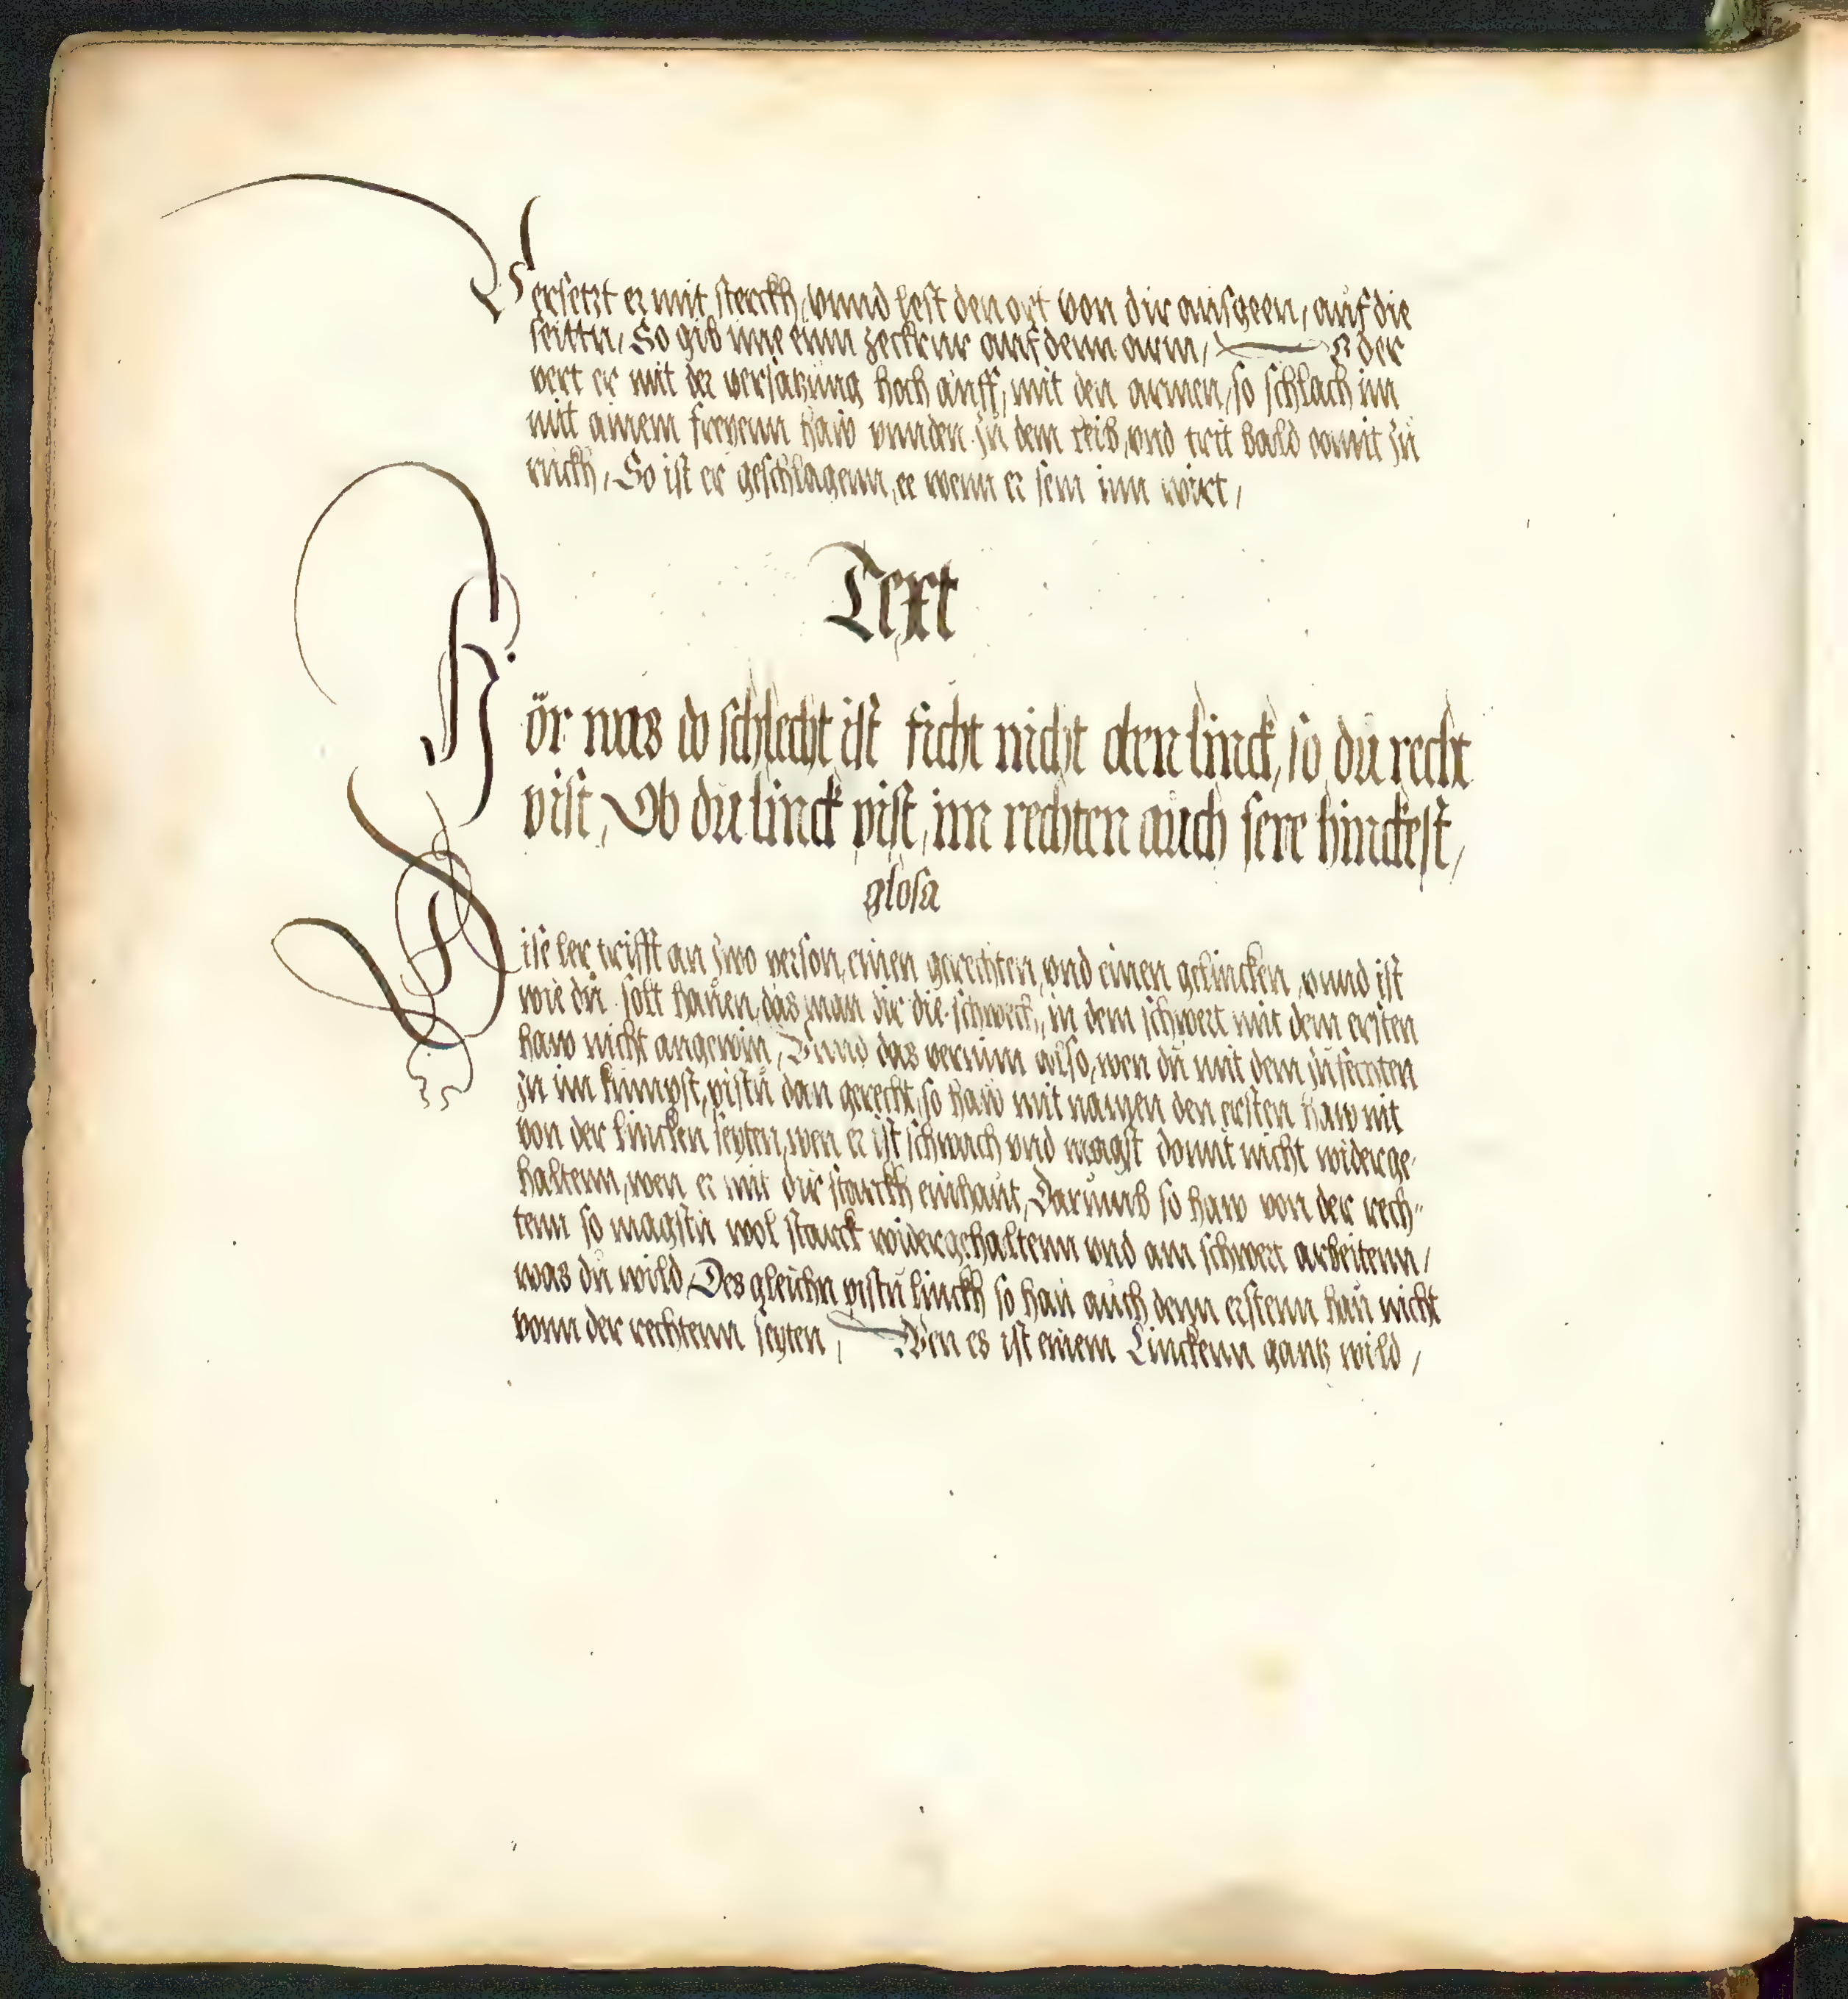 Versetzt er mit sterckh, vnnd lest den ort von dir ausgeen, auf die
seittn, So gib ime einn zeckrur auf denn arm, Oder
vert er mit der versatzung hoch auff, mit den armen, so schlach im
mit ainem freyenn haw vnnden zu dem leib, vnd trit bald domit zu
ruckh, So ist er geschlagenn, ee wenn er sein inn wirt,
Text
Hör was do schlecht ist ficht nicht oben linck, so du recht
pist, Ob du linck pist, im rechten auch sere hinckest,
glosa
Dise ler trifft an zwo person, einen gerechten, vnd einen gelincken, vnnd ist
wie du solt hauen, das man dir die schwech, in dem schwert mit dem ersten
haw nicht angewin, Vnnd das vernim also, wen du mit dem zufechten
zu im kumpst, pistu dan gerecht, so haw mit namen den ersten haw nit
von der lincken seyten, wen er ist schwach vnd magst domit nicht widerge-
haltenn, wen er mit dir starckh einhaut, Darumb so haw von der rech-
tenn so magstu wol starck widergehaltenn vnd am schwert arbeitenn,
was du wild, Des gleichn pistu linckh so hau auch denn erstenn hau nicht
vonn der rechtenn seyten, Wen es ist einem Linckenn gantz wild,